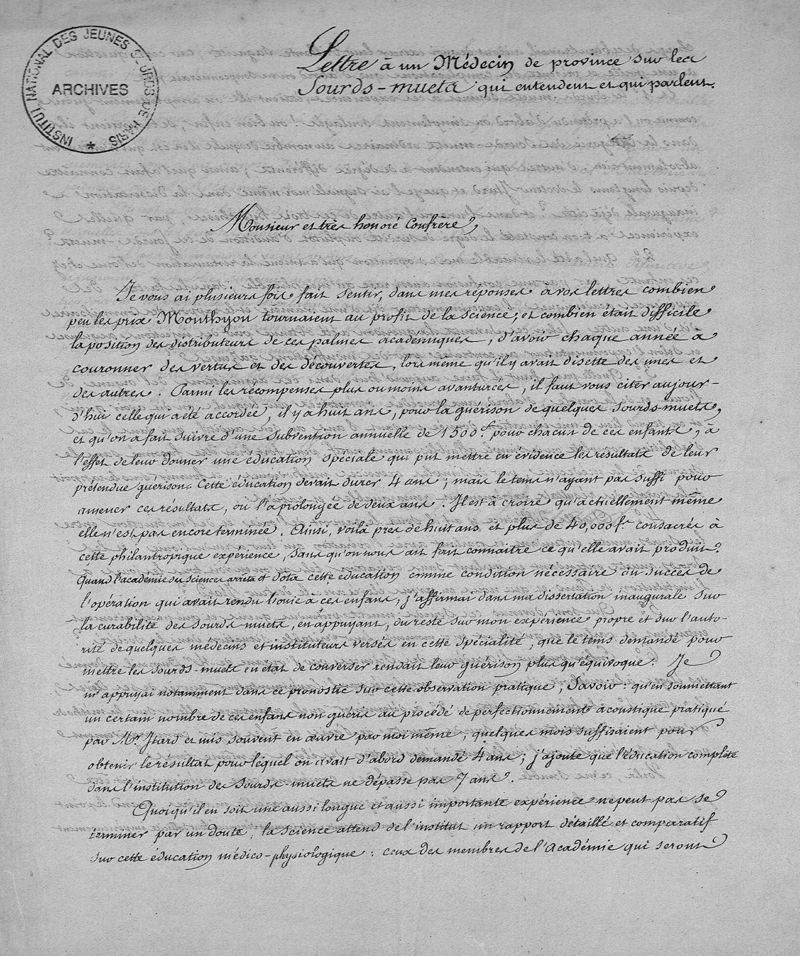 INSTITUT NATIONAL DES JEUNES SOURDS DE PARIS
ARCHIVES
Lettre à un Médecin de province sur les
Sourds-muets qui entendent et qui parlent.
Monsieur et très honoré Confrère,
Je vous ai plusieurs fois fait sentir, dans mes réponses à vos lettres combien
peu les prix Monthyon tournaient au profit de la science, et combien était difficile
la position des distributeurs de ces palmes academiques, d'avoir chaque année à
couronner des vertus et des découvertes, lors même qu'il y avait disette des unes et
des autres. Parmi les recompenses plus ou moins avanturées, il faut vous citer aujour-
d'hui celle qui a été accordée, il y a huit ans, pour la guérison de quelques sourds-muets,
et qu'on a fait suivre d'une subvention annuelle de 1500f. pour chacun de ces enfants, à
l'effet de leur donner une éducation spéciale qui put mettre en évidence les résultats de leur
prétendue guerison. Cette éducation devait durer 4 ans; mais le tems n'ayant pas suffi pour
amener ces resultats, on l'a prolongée de deux ans. Il est à croire qu'actuellement même
elle n'est pas encore terminée. Ainsi, voilà près de huit ans et plus de 40,000f. consacrés à
cette philantropique expérience, sans qu'on nous ait fait connaître ce qu'elle avait produit.
Quand l'académie des sciences arrêta et dota cette éducation comme condition nécessaire du succès de
l'opération qui avait rendu l'ouie à ces enfans, j'affirmai dans ma dissertation inaugurale sur
la curabilité des sourds muets, en appuyant, du reste sur mon expérience propre et sur l'auto-
rité de quelques médecins et instituteurs versés en cette spécialité, que le tems demandé pour
mettre les sourds-muets en état de converser rendait leur guérison plus qu'équivoque. Je
m'appuyai notamment dans ce pronostic sur cette observation pratique, Savoir: qu'en soumettant
un certain nombre de ces enfans non guéris au procédé de perfectionnement acoustique pratiqué
par Mr. Itard et mis souvent en œuvre par moi même, quelques mois suffisaient pour
obtenir le resultat pour lequel on avait d'abord demandé 4 ans; j'ajoute que l'éducation complète
dans l'institution des Sourds-muets ne dépasse pas 7 ans.
Quoi qu'il en soit une aussi longue et aussi importante expérience ne peut pas se
terminer par un doute; la science attend de l'institut un rapport détaillé et comparatif
sur cette éducation médico-physiologique: ceux des membres de l'Académie qui seront